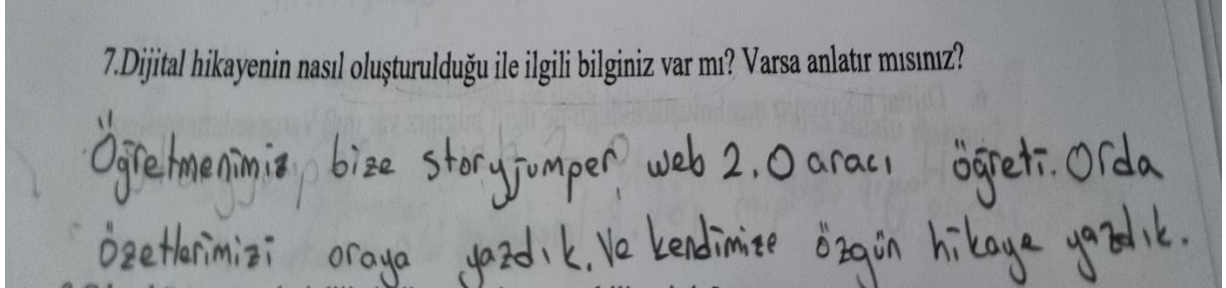 7.Dijital hikayenin nasıl oluşturulduğu ile ilgili bilginiz var mı? Varsa anlatır mısınız?
Öğretmenimiz bize storyjumper web 2.0 aracı öğreti. Orda
özetlerimizi oraya yazdık. Ve kendimize özgün hikaye yazdık.